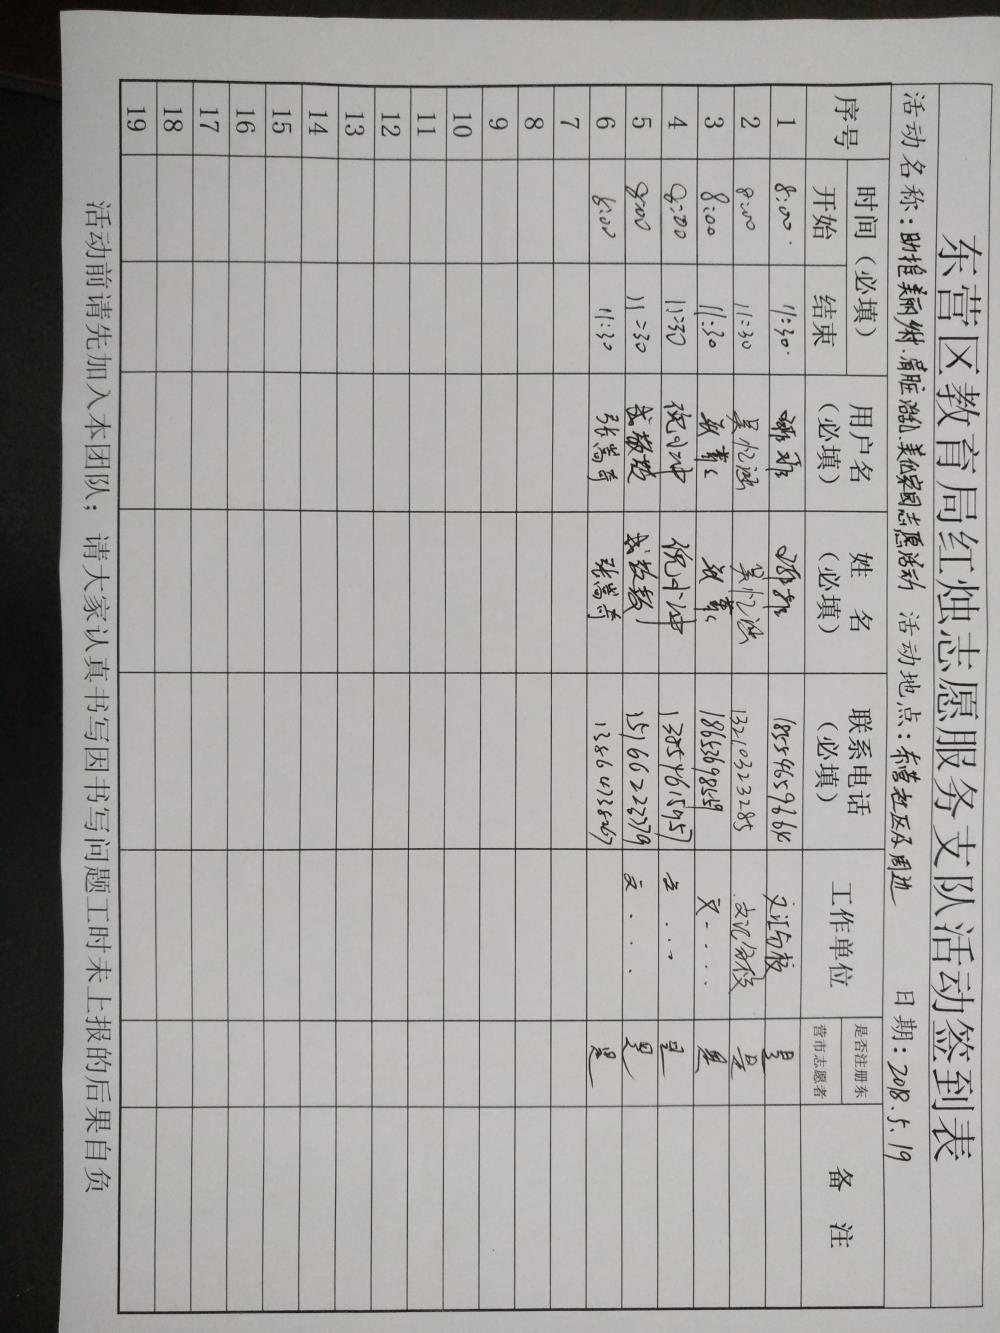 东营区教育局红烛志愿服务支队活动签到表
活动名称：助推美丽乡村.清脏治乱.美化家园志愿活动 活动地点：东营社区及周边 日期：2018.5.19
序号 时间（必填） 用户名（必填） 姓 名（必填） 联系电话（必填） 工作单位 是否注册东营市志愿者 备 注
开始 结束
1 8:00 11:30 是
2 8:00 11:30 吴忆涵 吴忆涵 13210323285 文汇分校 是
3 8:00 11:30 18653698559 文.... 是
4 8:00 11:30 倪小冲 倪小冲 文... 是
5 8:00 11:30 15166223779 文... 是
6 8:00 11:30 张嵩奇 张嵩奇 13864738267 是
7
8
9
10
11
12
13
14
15
16
17
18
19
活动前请先加入本团队；请大家认真书写因书写问题工时未上报的后果自负